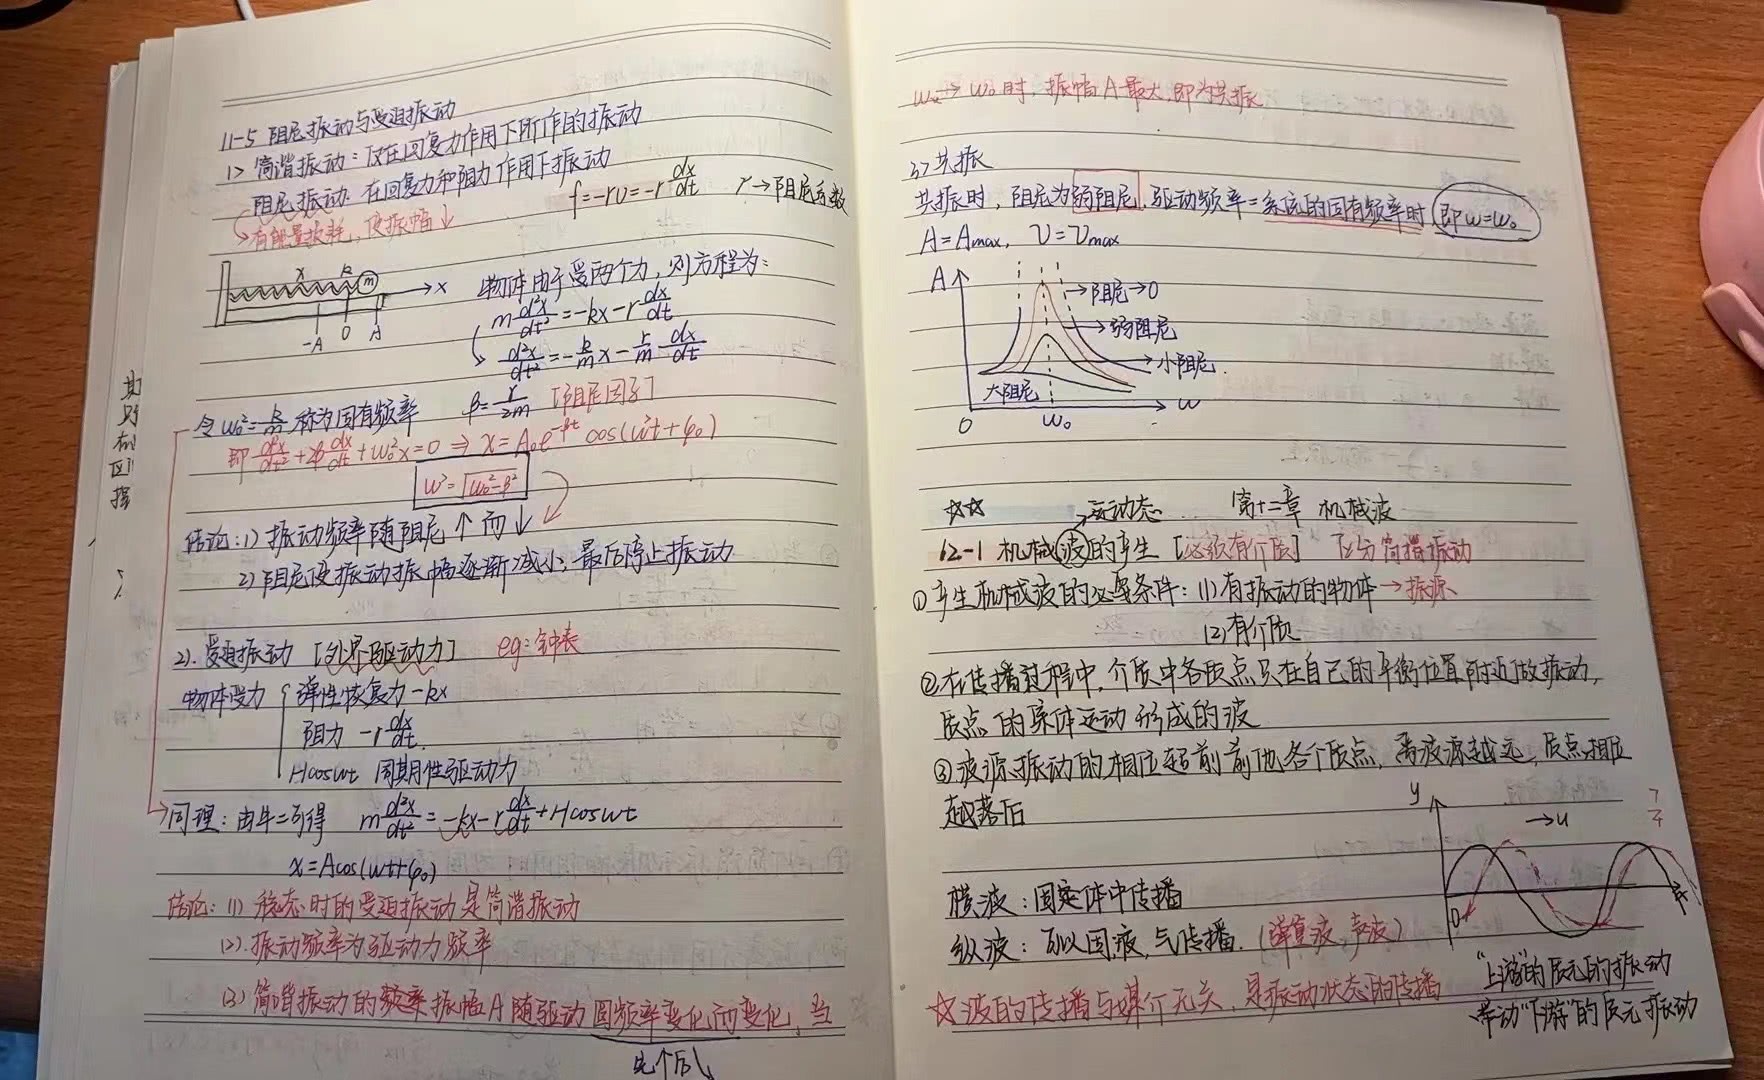 11-5 阻尼振动与受迫振动
1> 简谐振动：仅在回复力作用下所作的振动
阻尼振动：在回复力和阻力作用下振动
f=-rv=-r dx/dt r→阻尼系数
→有能量损耗，使振幅↓
x k m → x
-A O A
物体由于受两个力，则方程为：
m d²x/dt² = -kx - r dx/dt
d²x/dt² = -k/m x - r/m dx/dt
令 ω₀² = k/m 称为固有频率 β = r/2m [阻尼因子]
即 d²x/dt² + 2β dx/dt + ω₀²x = 0 ⇒ x = A₀e^-βt cos(ω't+φ₀)
ω' = √ω₀²-β²
结论：1) 振动频率随阻尼↑而↓
2) 阻尼使振动振幅逐渐减小，最后停止振动
2). 受迫振动 [外界驱动力] eg：钟表
物体受力 { 弹性恢复力 -kx
阻力 -r dx/dt
Hcosωt 周期性驱动力
同理：由牛二可得 m d²x/dt² = -kx - r dx/dt + Hcosωt
x = Acos(ωt+φ₀)
结论：(1) 稳态时的受迫振动是简谐振动
(2). 振动频率为驱动力频率
(3) 简谐振动的振幅A随驱动圆频率变化而变化，当
ω₀时，振幅A最大，即为共振
3> 共振
共振时，阻尼为弱阻尼，驱动频率=系统的固有频率时，即ω=ω₀
A=Amax, v=vmax
A
→阻尼→0
→弱阻尼
→小阻尼
大阻尼
O ω₀ ω
☆☆ →运动态 第十二章 机械波
12-1 机械波的产生 [必须有介质] 区分简谐振动
① 产生机械波的必要条件：(1) 有振动的物体→振源
(2) 有介质
② 在传播过程中，介质中各质点只在自己的平衡位置附近做振动，
质点的集体运动形成的波
③ 波源振动的相位超前其他各个质点，离波源越远，质点相位
越落后
y →u
O
横波：固定体中传播
纵波：可以固、液、气传播.（弹簧波，声波）
“上游”的质元的振动
带动“下游”的质元振动
☆波的传播与媒介无关，是振动状态的传播